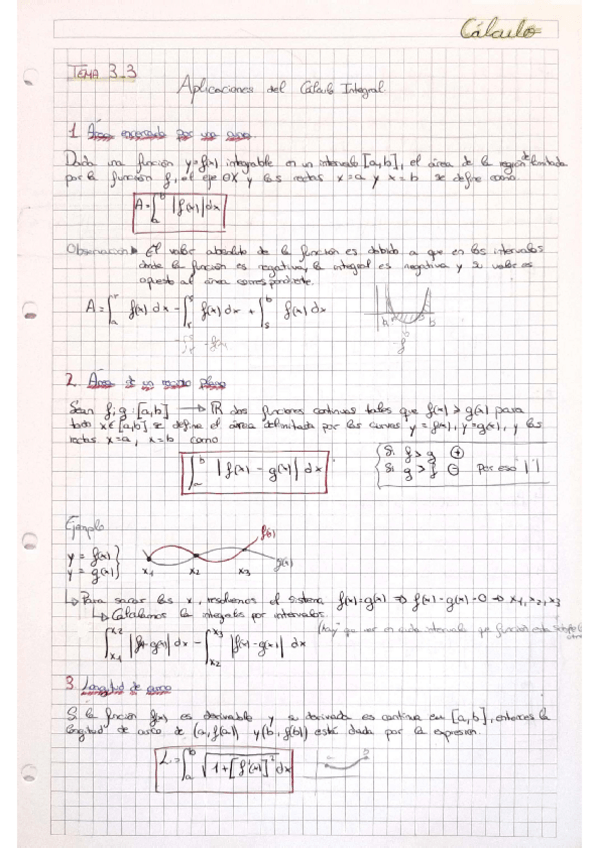 Cálculo
TEMA 3.3
Aplicaciones del Cálculo Integral
1 Área encerrada por una curva.
Dada una función y=f(x) integrable en un intervalo [a,b], el área de la región delimitada
por la función f, el eje OX y las rectas x=a y x=b se define como
A=∫_a^b |f(x)|dx
Observación► El valor absoluto de la función es debido a que en los intervalos
donde la función es negativa, la integral es negativa y su valor es
opuesto al área correspondiente.
A=∫_a^r f(x) dx - ∫_r^s f(x) dx + ∫_s^b f(x) dx
a b
2. Área de un recinto plano
Sean f, g: [a,b] → ℝ dos funciones continuas tales que f(x) > g(x) para
todo x∈[a,b] se define el área delimitada por las curvas y=f(x), y=g(x), y las
rectas x=a, x=b como
∫_a^b |f(x) - g(x)| dx
Si f>g ⊕
Si g>f ⊖ Por eso | |
Ejemplo
y = f(x)
y = g(x)
x1 x2 x3 f(x) g(x)
↳ Para sacar las x, resolvemos el sistema f(x)=g(x) ⇒ f(x)-g(x)=0 ⇒ x1, x2, x3
↳ Calculamos la integral por intervalos
(Hay que ver en cada intervalo que función está
∫_x1^x2 |f(x)-g(x)| dx - ∫_x2^x3 |f(x)-g(x)| dx
3 Longitud de arco
Si la función f(x) es derivable y su derivada es continua en [a,b], entonces la
longitud de arco de (a, f(a)) y (b, f(b)) está dada por la expresión.
L=∫_a^b √(1+[f'(x)]²) dx